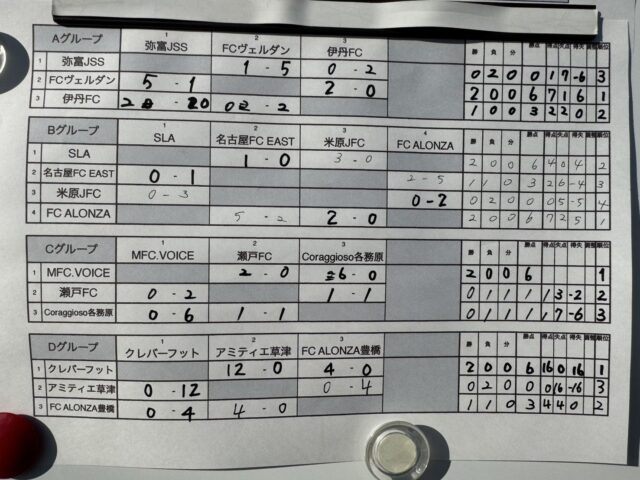 Aグループ 1 弥富JSS 2 FCヴェルダン 3 伊丹FC 勝 負 分 勝点 得点 失点 得失 順位
1 弥富JSS 1 - 5 0 - 2 0 2 0 0 1 7 -6 3
2 FCヴェルダン 5 - 1 2 - 0 2 0 0 6 7 1 6 1
3 伊丹FC 0 2 - 2 1 0 0 3 2 2 0 2
Bグループ 1 SLA 2 名古屋FC EAST 3 米原JFC 4 FC ALONZA
1 SLA 1 - 0 3 - 0 2 0 0 6 4 0 4 2
2 名古屋FC EAST 0 - 1 2 - 5 1 1 0 3 2 6 -4 3
3 米原JFC 0 - 3 0 - 2 0 2 0 0 0 5 -5 4
4 FC ALONZA 5 - 2 2 - 0 2 0 0 6 7 2 5 1
Cグループ 1 MFC.VOICE 2 瀬戸FC 3 Coraggioso各務原 勝 負 分 勝点 得点 失点 得失 順位
1 MFC.VOICE 2 - 0 6 - 0 2 0 0 6 1
2 瀬戸FC 0 - 2 1 - 1 0 1 1 1 1 3 -2 2
3 Coraggioso各務原 0 - 6 1 - 1 0 1 1 1 1 7 -6 3
Dグループ 1 クレバーフット 2 アミティエ草津 3 FC ALONZA豊橋 勝 負 分 勝点 得点 失点 得失 順位
1 クレバーフット 12 - 0 4 - 0 2 0 0 6 16 0 16 1
2 アミティエ草津 0 - 12 0 - 4 0 2 0 0 0 16 -16 3
3 FC ALONZA豊橋 0 - 4 4 - 0 1 1 0 3 4 4 0 2